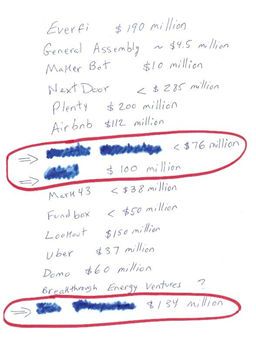 EverFi $190 million
General Assembly ~ $4.5 million
Maker Bot $10 million
Next Door < $285 million
Plenty $200 million
Airbnb $112 million
< $76 million
$100 million
Mark 43 < $38 million
Fundbox < $50 million
Lookout $150 million
Uber $37 million
Domo $60 million
Breakthrough Energy Ventures ?
$134 million